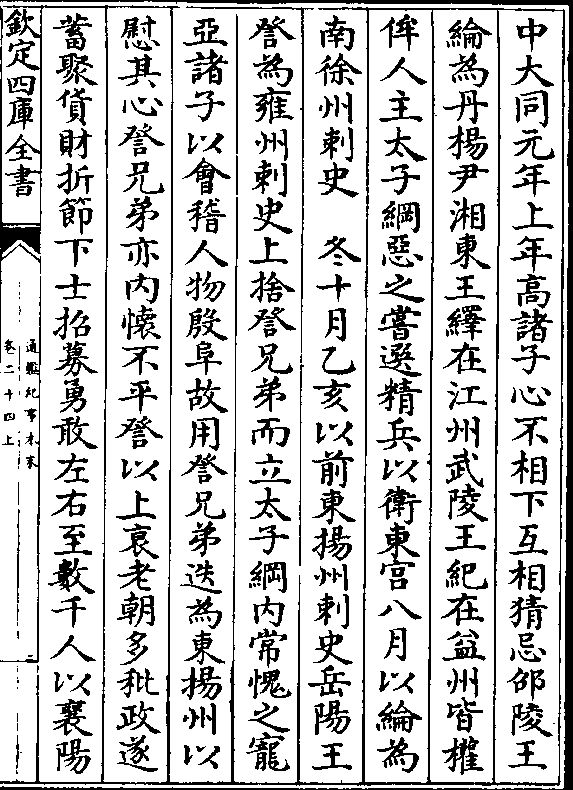 中大同元年上年高諸子心不相下互相猜忌邵陵王
綸為丹楊尹湘東王繹在江州武陵王紀在益州皆權
侔人主太子綱惡之嘗選精兵以衛東宮八月以綸為
南徐州刺史　冬十月乙亥以前東揚州刺史岳陽王
詧為雍州刺史上捨詧兄弟而立太子綱内常愧之寵
亞諸子以會稽人物殷阜故用詧兄弟迭為東揚州以
慰其心詧兄弟亦内懷不平詧以上衰老朝多秕政遂
蓄聚貨財折節下士招募勇敢左右至數千人以襄陽
欽定四庫全書
通鑑紀事本末
卷二十四上
二